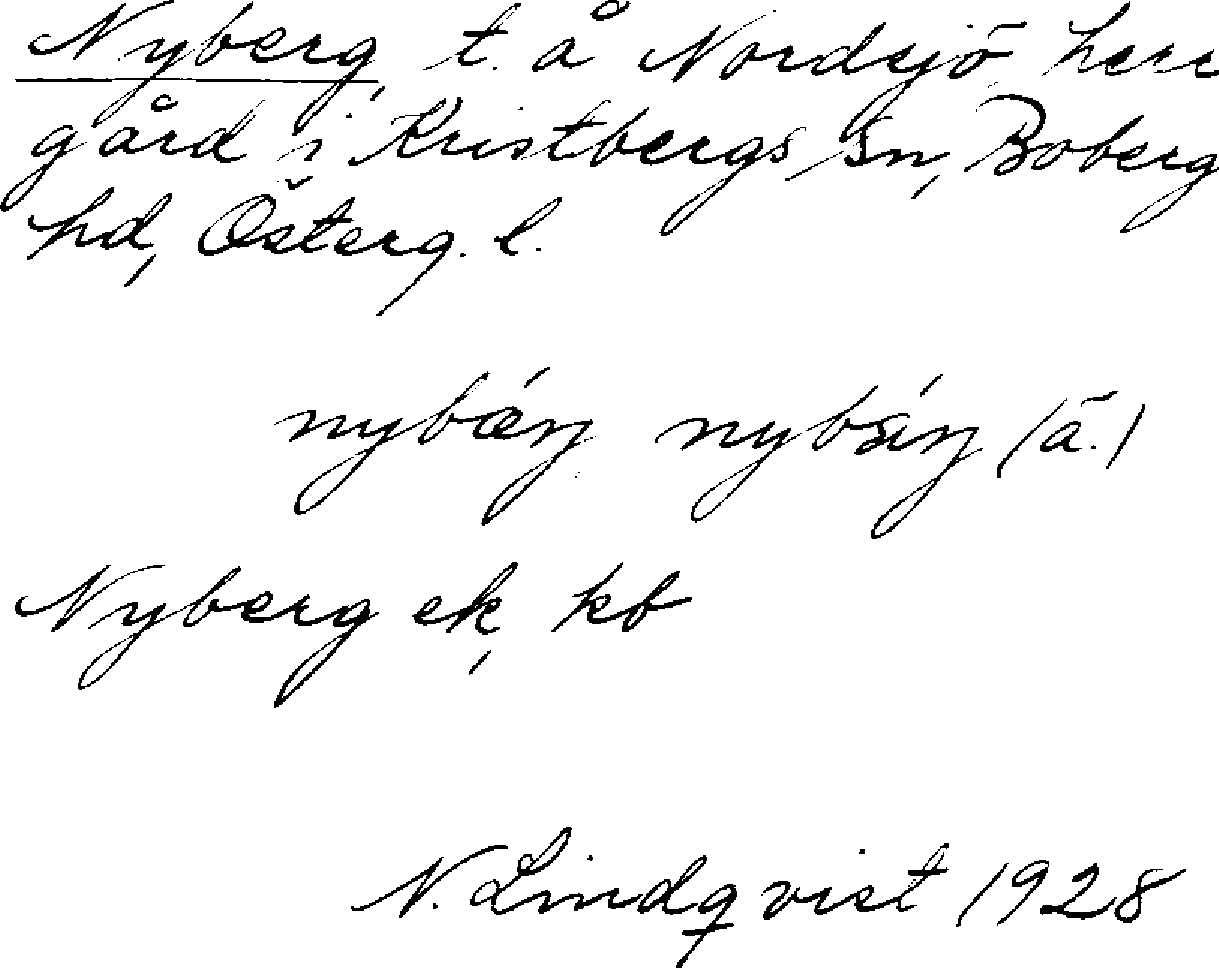 Nyberg, t. å Nordsjö herr
gård i Kristbergs sn, Boberg
hd, Österg. l.
(ä.)
Nyberg ek, kb
N. Lindqvist 1928